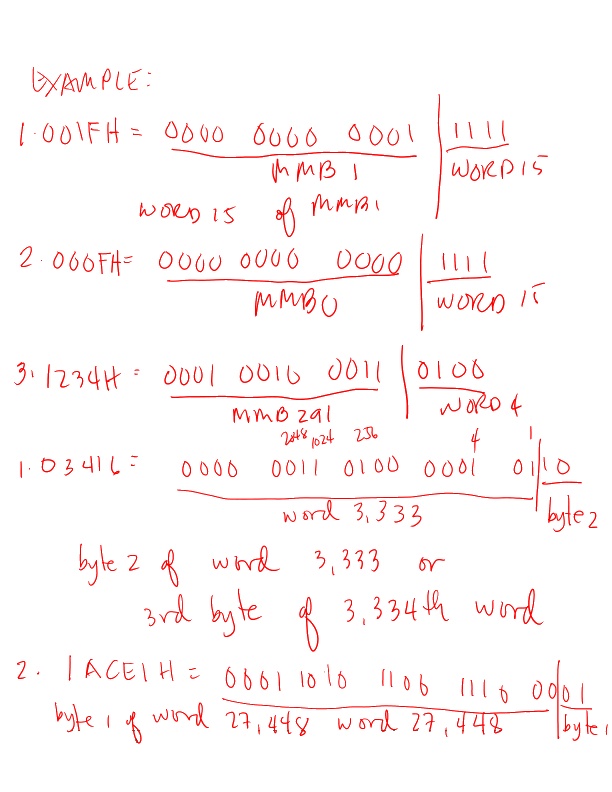 EXAMPLE:
1. 001FH = 0000 0000 0001 | 1111
MMB 1 WORD 15
WORD 15 of MMB1
2. 000FH= 0000 0000 0000 | 1111
MMB0 WORD 15
3. 1234H = 0001 0010 0011 | 0100
MMB 291 WORD 4
2048 1024 256 4 1
1. 03416 = 0000 0011 0100 0001 01|10
word 3,333 byte 2
byte 2 of word 3,333 or
3rd byte of 3,334th word
2. 1ACE1H = 0001 1010 1100 1110 00|01
byte 1 of word 27,448 word 27,448 byte 1